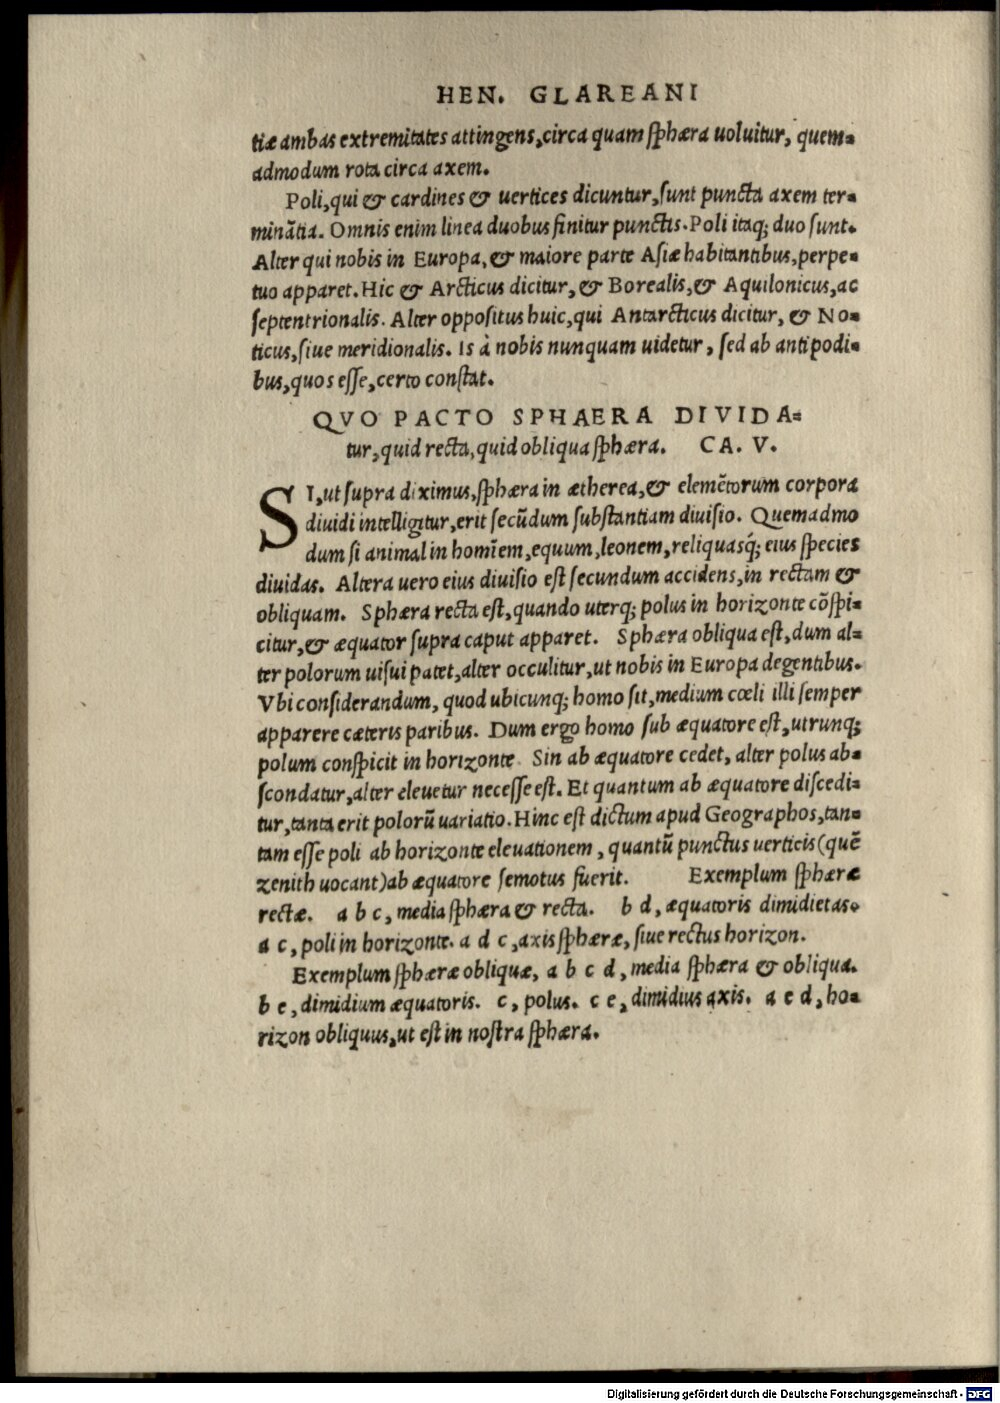 HEN. GLAREANI
tiæ ambas extremitates attingens, circa quam sphæra uoluitur, quem-
admodum rota circa axem.
Poli, qui & cardines & uertices dicuntur, sunt puncta axem ter-
minātia. Omnis enim linea duobus finitur punctis. Poli itaq; duo sunt.
Alter qui nobis in Europa, & maiore parte Asiæ habitantibus, perpe-
tuo apparet. Hic & Arcticus dicitur, & Borealis, & Aquilonicus, ac
septentrionalis. Alter oppositus huic, qui Antarcticus dicitur, & No-
ticus, siue meridionalis. Is à nobis nunquam uidetur, sed ab antipodi-
bus, quos esse, certo constat.
QVO PACTO SPHAERA DIVIDA-
tur, quid recta, quid obliqua sphæra. CA. V.
SI, ut supra diximus, sphæra in ætherea, & elemētorum corpora
diuidi intelligitur, erit secūdum substantiam diuisio. Quemadmo
dum si animal in homīem, equum, leonem, reliquasq́; eius species
diuidas. Altera uero eius diuisio est secundum accidens, in rectam &
obliquam. Sphæra recta est, quando uterq; polus in horizonte cōspi-
citur, & æquator supra caput apparet. Sphæra obliqua est, dum al-
ter polorum uisui patet, alter occulitur, ut nobis in Europa degentibus.
Vbi considerandum, quod ubicunq; homo sit, medium cœli illi semper
apparere cæteris paribus. Dum ergo homo sub æquatore est, utrunq;
polum conspicit in horizonte. Sin ab æquatore cedet, alter polus ab-
scondatur, alter eleuetur necesse est. Et quantum ab æquatore discedi-
tur, tanta erit polorū uariatio. Hinc est dictum apud Geographos, tan-
tam esse poli ab horizonte eleuationem, quantū punctus uerticis (quē
zenith uocant) ab æquatore semotus fuerit. Exemplum sphæræ
rectæ. a b c, media sphæra & recta. b d, æquatoris dimidietas.
a c, poli in horizonte. a d c, axis sphæræ, siue rectus horizon.
Exemplum sphæræ obliquæ, a b c d, media sphæra & obliqua.
b e, dimidium æquatoris. c, polus. c e, dimidius axis. a e d, ho-
rizon obliquus, ut est in nostra sphæra.
Digitalisierung gefördert durch die Deutsche Forschungsgemeinschaft - DFG